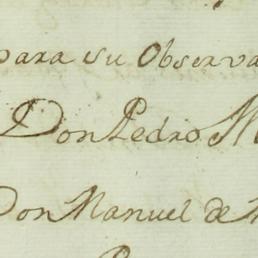 para su Observa
Don Pedro M
Don Manuel de